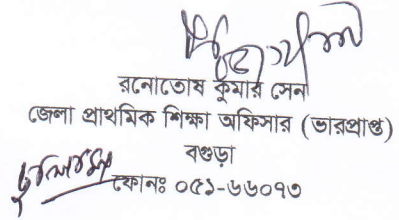 রনোতোষ কুমার সেন
জেলা প্রাথমিক শিক্ষা অফিসার (ভারপ্রাপ্ত)
বগুড়া
ফোনঃ ০৫১-৬৬০৭৩